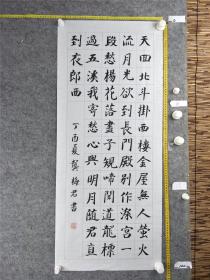 天回北斗掛西樓金屋無人螢火
流月光欲到長門殿別作深宮一
段愁楊花落盡子規啼聞道龍標
過五溪我寄愁心與明月隨君直
到夜郎西
丁酉夏龔梅君書